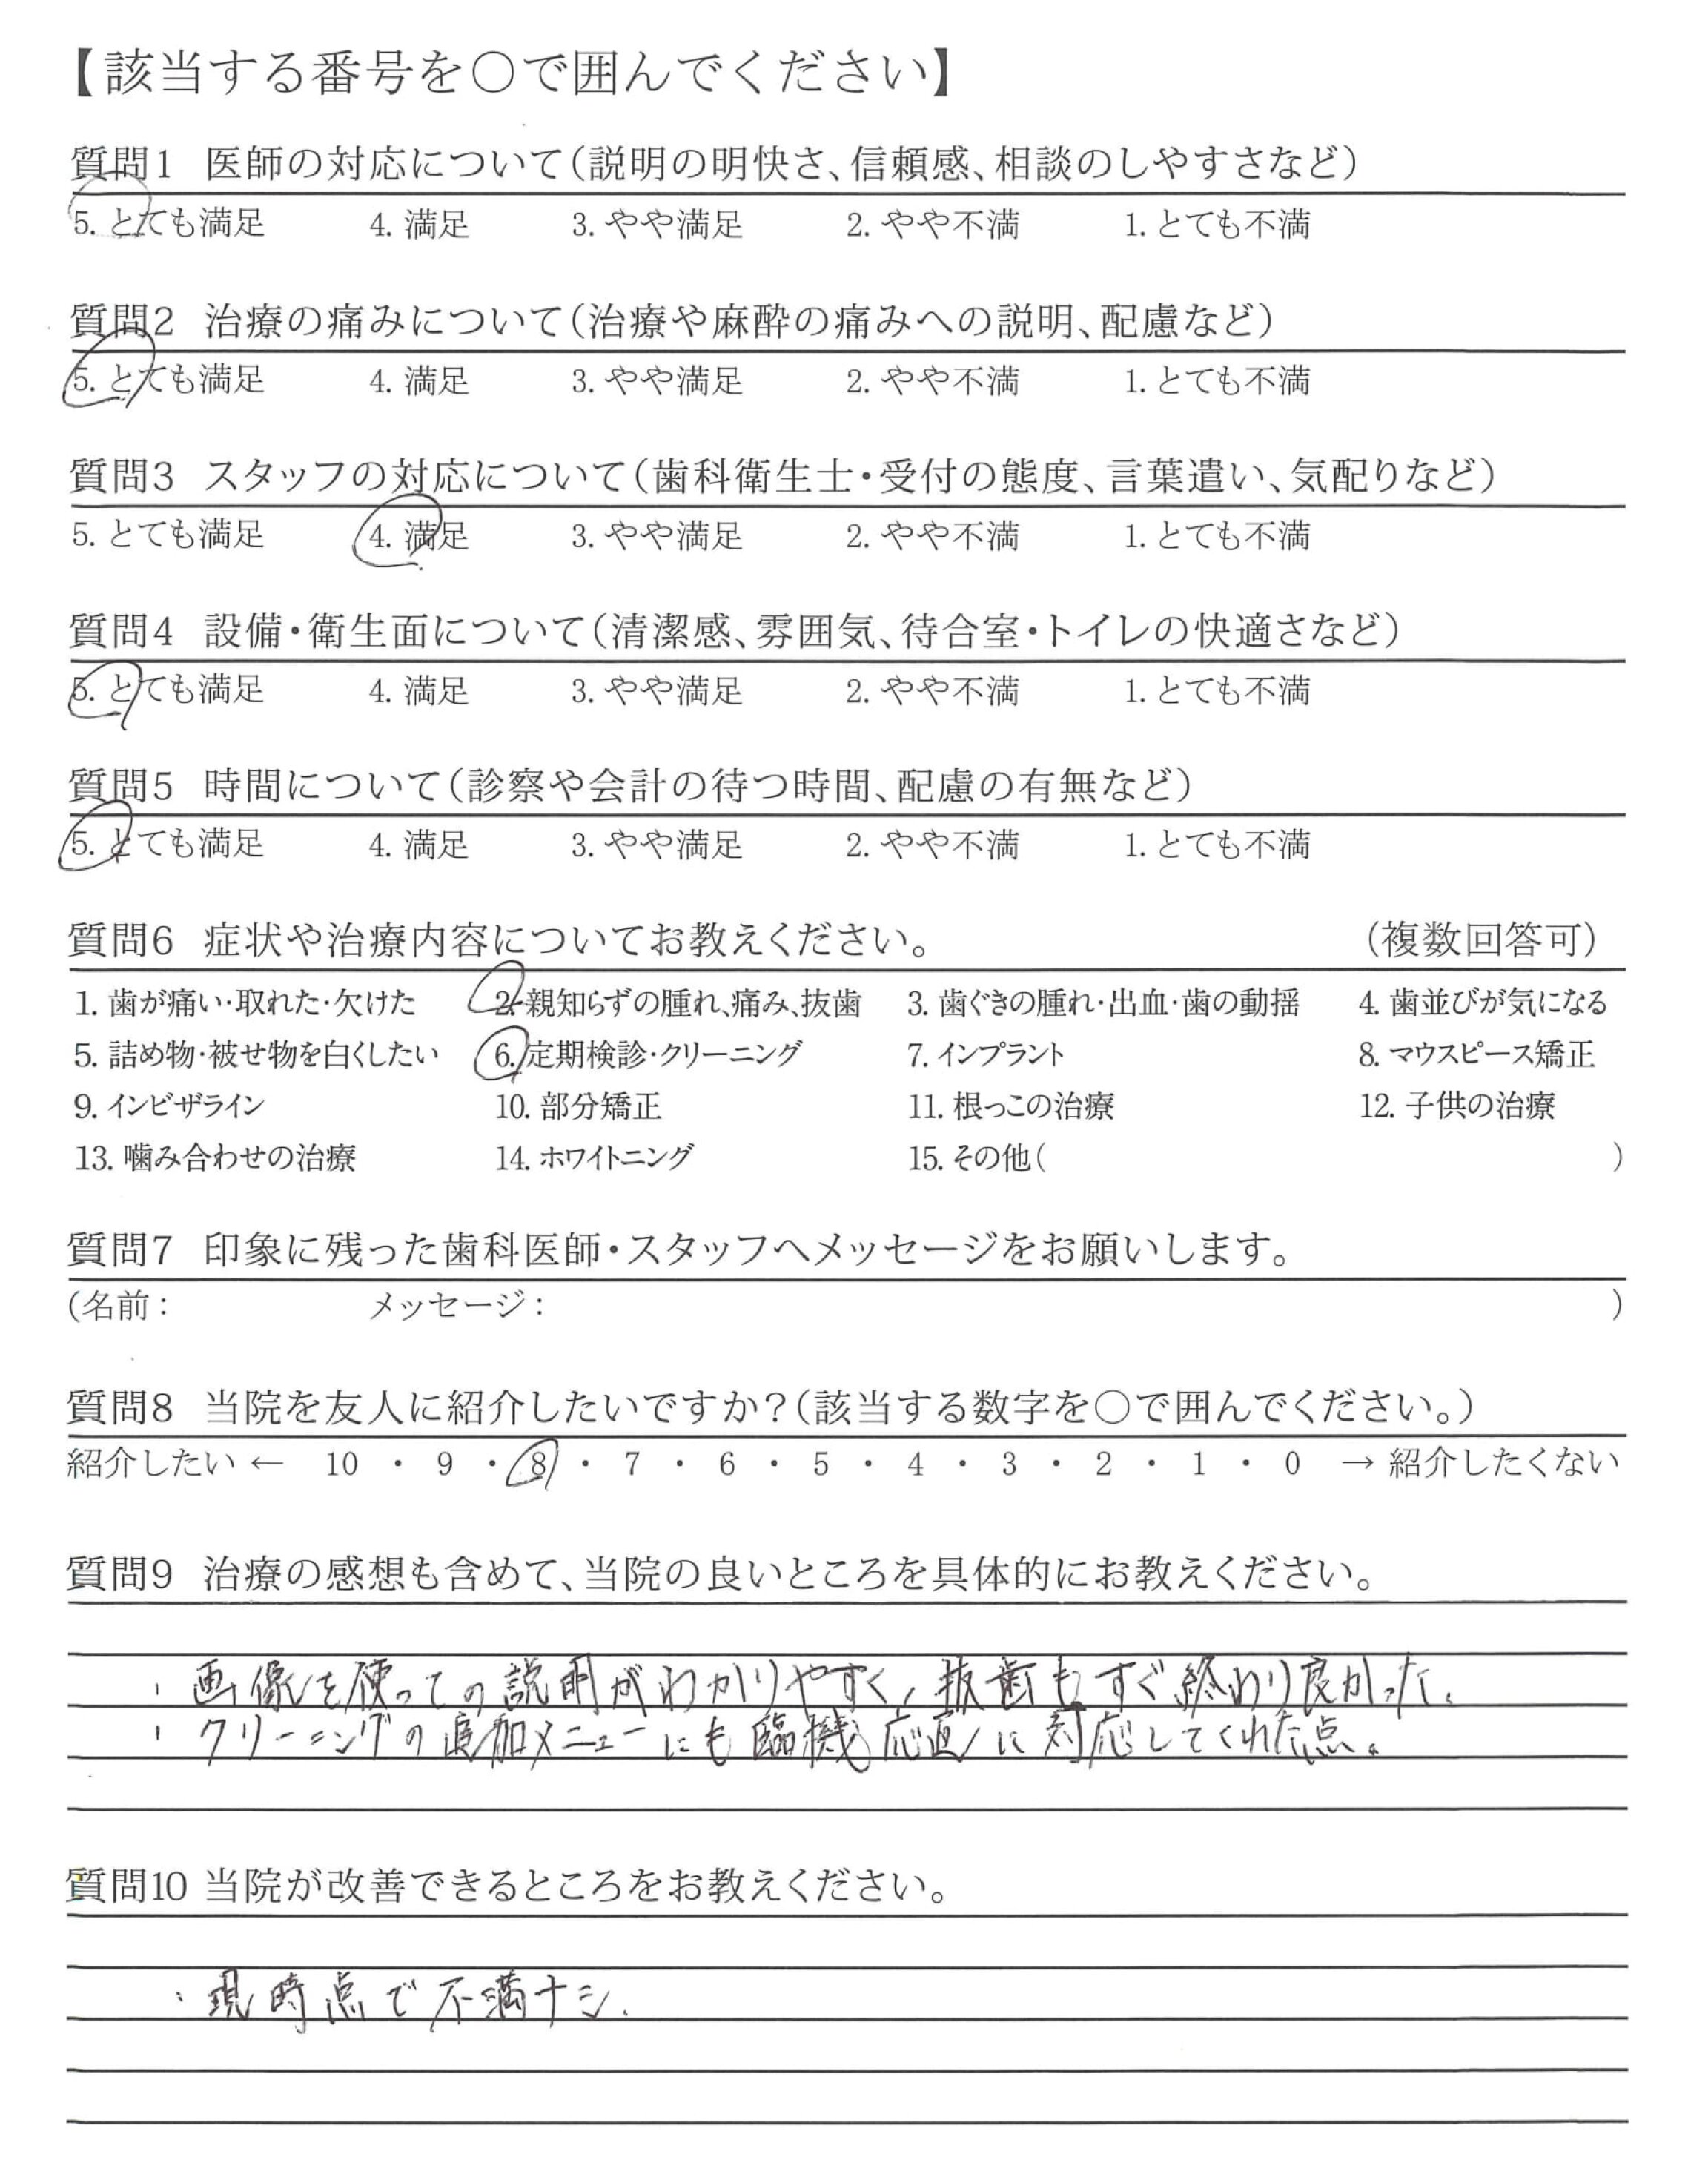 【該当する番号を○で囲んでください】
質問1 医師の対応について(説明の明快さ、信頼感、相談のしやすさなど)
5. とても満足 4. 満足 3. やや満足 2. やや不満 1. とても不満
質問2 治療の痛みについて(治療や麻酔の痛みへの説明、配慮など)
5. とても満足 4. 満足 3. やや満足 2. やや不満 1. とても不満
質問3 スタッフの対応について(歯科衛生士・受付の態度、言葉遣い、気配りなど)
5. とても満足 4. 満足 3. やや満足 2. やや不満 1. とても不満
質問4 設備・衛生面について(清潔感、雰囲気、待合室・トイレの快適さなど)
5. とても満足 4. 満足 3. やや満足 2. やや不満 1. とても不満
質問5 時間について(診察や会計の待つ時間、配慮の有無など)
5. とても満足 4. 満足 3. やや満足 2. やや不満 1. とても不満
質問6 症状や治療内容についてお教えください。 (複数回答可)
1. 歯が痛い・取れた・欠けた 2. 親知らずの腫れ、痛み、抜歯 3. 歯ぐきの腫れ・出血・歯の動揺 4. 歯並びが気になる
5. 詰め物・被せ物を白くしたい 6. 定期検診・クリーニング 7. インプラント 8. マウスピース矯正
9. インビザライン 10. 部分矯正 11. 根っこの治療 12. 子供の治療
13. 噛み合わせの治療 14. ホワイトニング 15. その他( )
質問7 印象に残った歯科医師・スタッフへメッセージをお願いします。
(名前: メッセージ: )
質問8 当院を友人に紹介したいですか?(該当する数字を○で囲んでください。)
紹介したい ← 10 ・ 9 ・ 8 ・ 7 ・ 6 ・ 5 ・ 4 ・ 3 ・ 2 ・ 1 ・ 0 → 紹介したくない
質問9 治療の感想も含めて、当院の良いところを具体的にお教えください。
・画像を使っての説明がわかりやすく、抜歯もすぐ終わり良かった。
・クリーニングの追加メニューにも臨機応変に対応してくれた点。
質問10 当院が改善できるところをお教えください。
・現時点で不満ナシ.